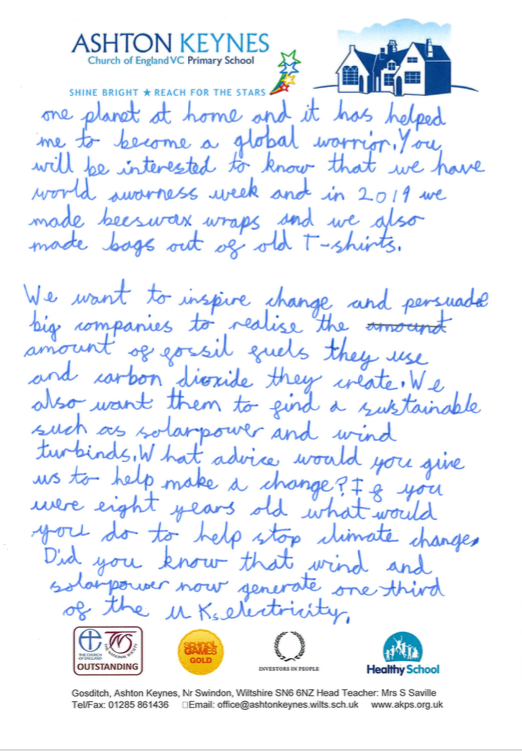 ASHTON KEYNES
Church of England VC Primary School
SHINE BRIGHT ★ REACH FOR THE STARS
one planet at home and it has helped
me to become a global warrior. You
will be interested to know that we have
world awarness week and in 2019 we
made beeswax wraps and we also
made bags out of old T-shirts.
We want to inspire change and persuade
big companies to realise the amound
amount of fossil fuels they use
and carbon dioxide they create. We
also want them to find a sustainable
such as solarpower and wind
turbinds. What advice would you give
us to help make a change? If you
were eight years old what would
you do to help stop climate change.
Did you know that wind and
solarpower now generate one third
of the U Ks electricity.
THE CHURCH OF ENGLAND
OUTSTANDING
SCHOOL GAMES
GOLD
INVESTORS IN PEOPLE
Healthy School
Gosditch, Ashton Keynes, Nr Swindon, Wiltshire SN6 6NZ Head Teacher: Mrs S Saville
Tel/Fax: 01285 861436 □Email: office@ashtonkeynes.wilts.sch.uk www.akps.org.uk